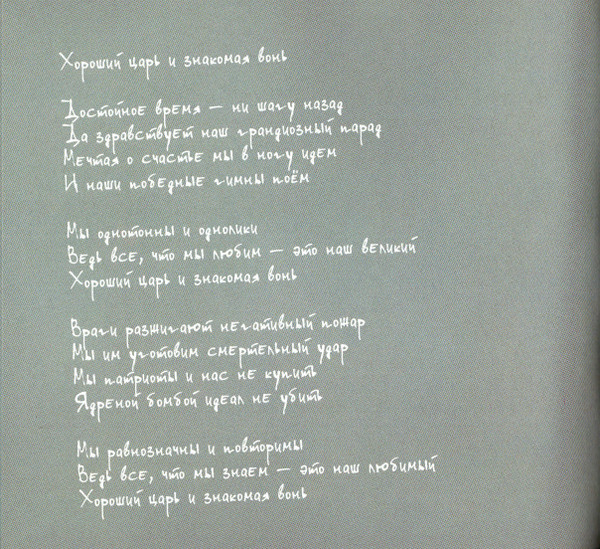 Хороший царь и знакомая вонь
Достойное время — ни шагу назад
Да здравствует наш грандиозный парад
Мечтая о счастье мы в ногу идем
И наши победные гимны поём
Мы однотонны и однолики
Ведь все, что мы любим — это наш великий
Хороший царь и знакомая вонь
Враги разжигают негативный пожар
Мы им уготовим смертельный удар
Мы патриоты и нас не купить
Ядреной бомбой идеал не убить
Мы равнозначны и повторимы
Ведь все, что мы знаем — это наш любимый
Хороший царь и знакомая вонь